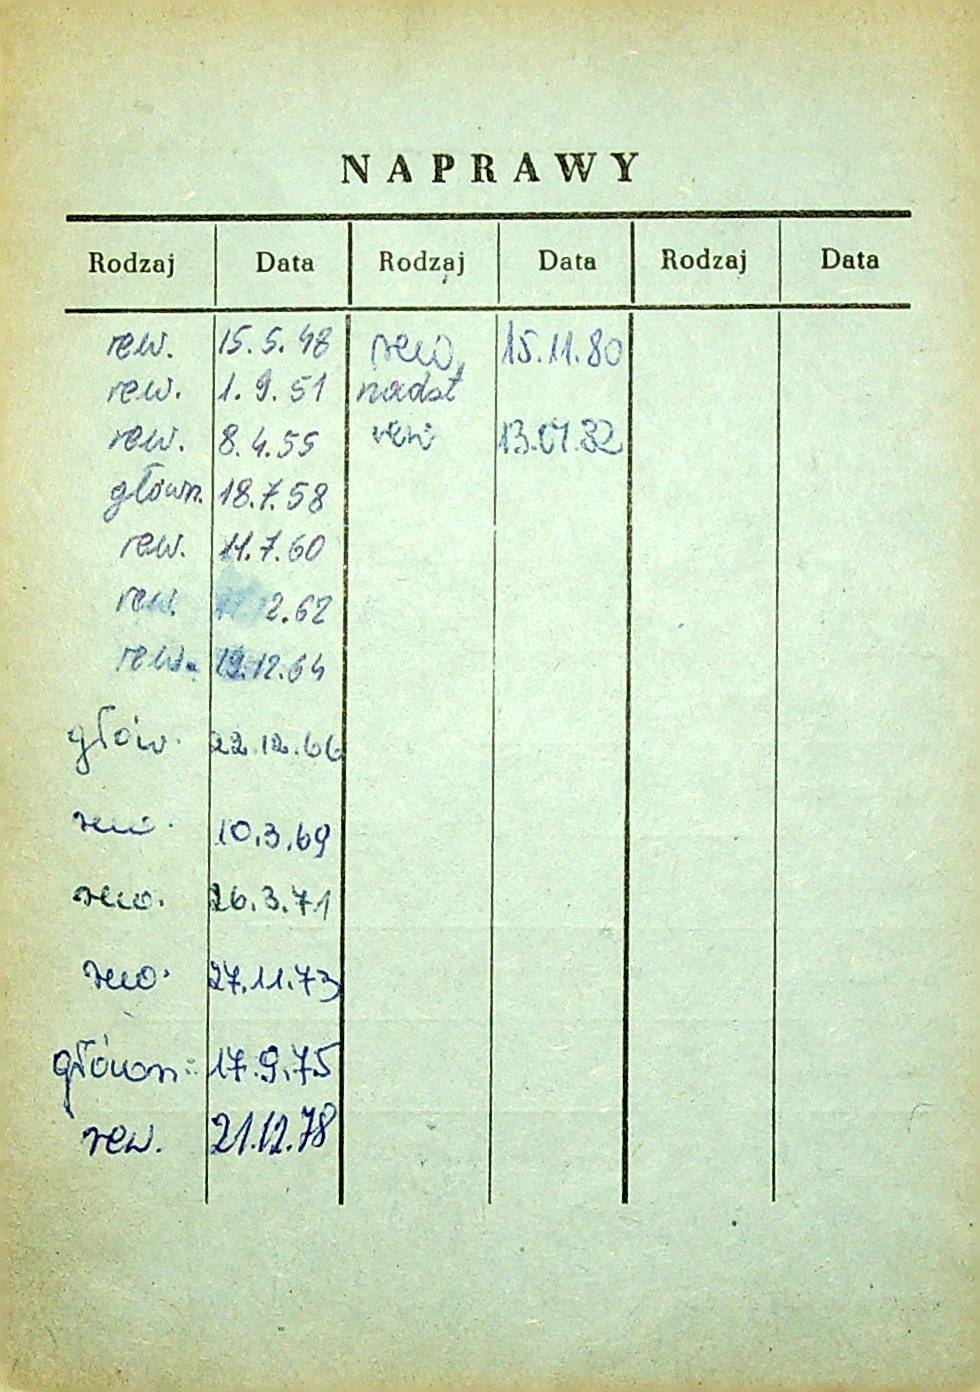 NAPRAWY
Rodzaj Data Rodzaj Data Rodzaj Data
rew. 15.5.48 rew. 15.11.80
rew. 1.9.51 nadst
rew. 8.4.55 rew
główn. 18.7.58
rew. 11.7.60
rew. 2.62
rew. 19.12.64
głów. 22.12.66
rew. 10.3.69
rew. 26.3.71
rew. 27.11.73
główn. 17.9.75
rew. 21.12.78